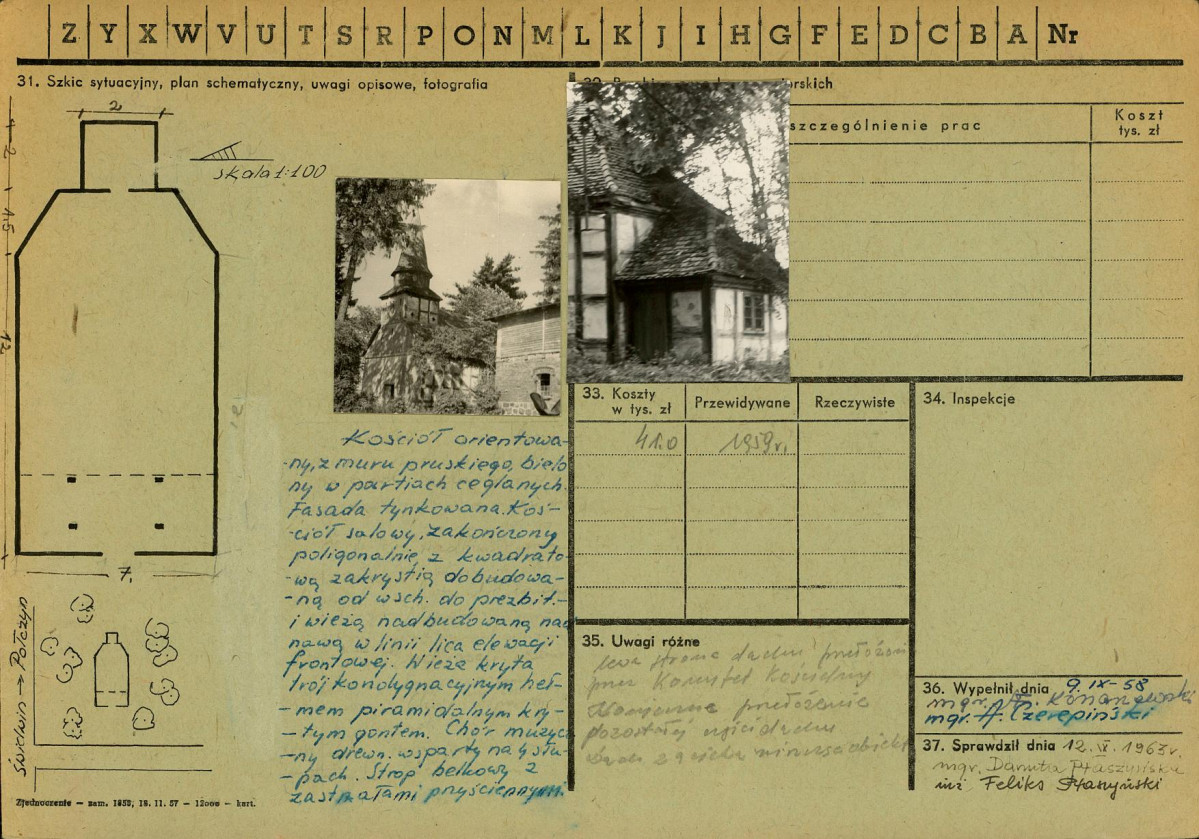 Z Y X W V U T S R P O N M L K J I H G F E D C B A Nr
31. Szkic sytuacyjny, plan schematyczny, uwagi opisowe, fotografia
2
2
1.5
12
7.
skala 1:100
Świdwin → Połczyn
Kościół orientowa-
-ny, z muru pruskiego, bielo
ny w partiach ceglanych.
Fasada tynkowana. Koś-
-ciół salowy, zakończony
poligonalnie, z kwadrato-
-wą zakrystią dobudowa-
-ną od wsch. do prezbit.-
i wieżą nadbudowaną nad
nawą w linii lica elewacji
frontowej. Wieża kryta
trójkondygnacyjnym heł-
-mem piramidalnym kry-
-tym gontem. Chór muzycz
-ny drewn. wsparty na 4 słu-
-pach. Strop belkowy z
zastrzałami przyściennymi.
Zjednoczenie – zam. 1853, 18. 11. 57 – 12000 – kart.
szczególnienie prac
Koszt
tys. zł
33. Koszty
w tys. zł
Przewidywane
Rzeczywiste
41.0
1959 r.
34. Inspekcje
35. Uwagi różne
strona dachu przełożon
przez Komitet Kościelny
przełożenie
pozostałej części dachu
36. Wypełnił dnia 9.IX-58
mgr. A. Konarzewski
mgr. A. Czerepiński
37. Sprawdził dnia 12. VI. 1963 r.
mgr. Danuta Ptaszyńska
inż Feliks Ptaszyński